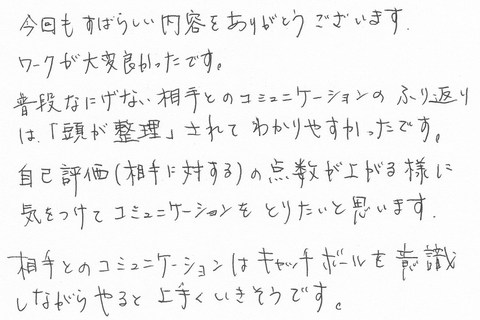 今回もすばらしい内容をありがとうございます.
ワークが大変良かったです。
普段なにげない相手とのコミュニケーションのふり返り
は、「頭が整理」されてわかりやすかったです。
自己評価(相手に対する)の点数が上がる様に
気をつけてコミュニケーションをとりたいと思います.
相手とのコミュニケーションはキャッチボールを意識
しながらやると上手くいきそうです。